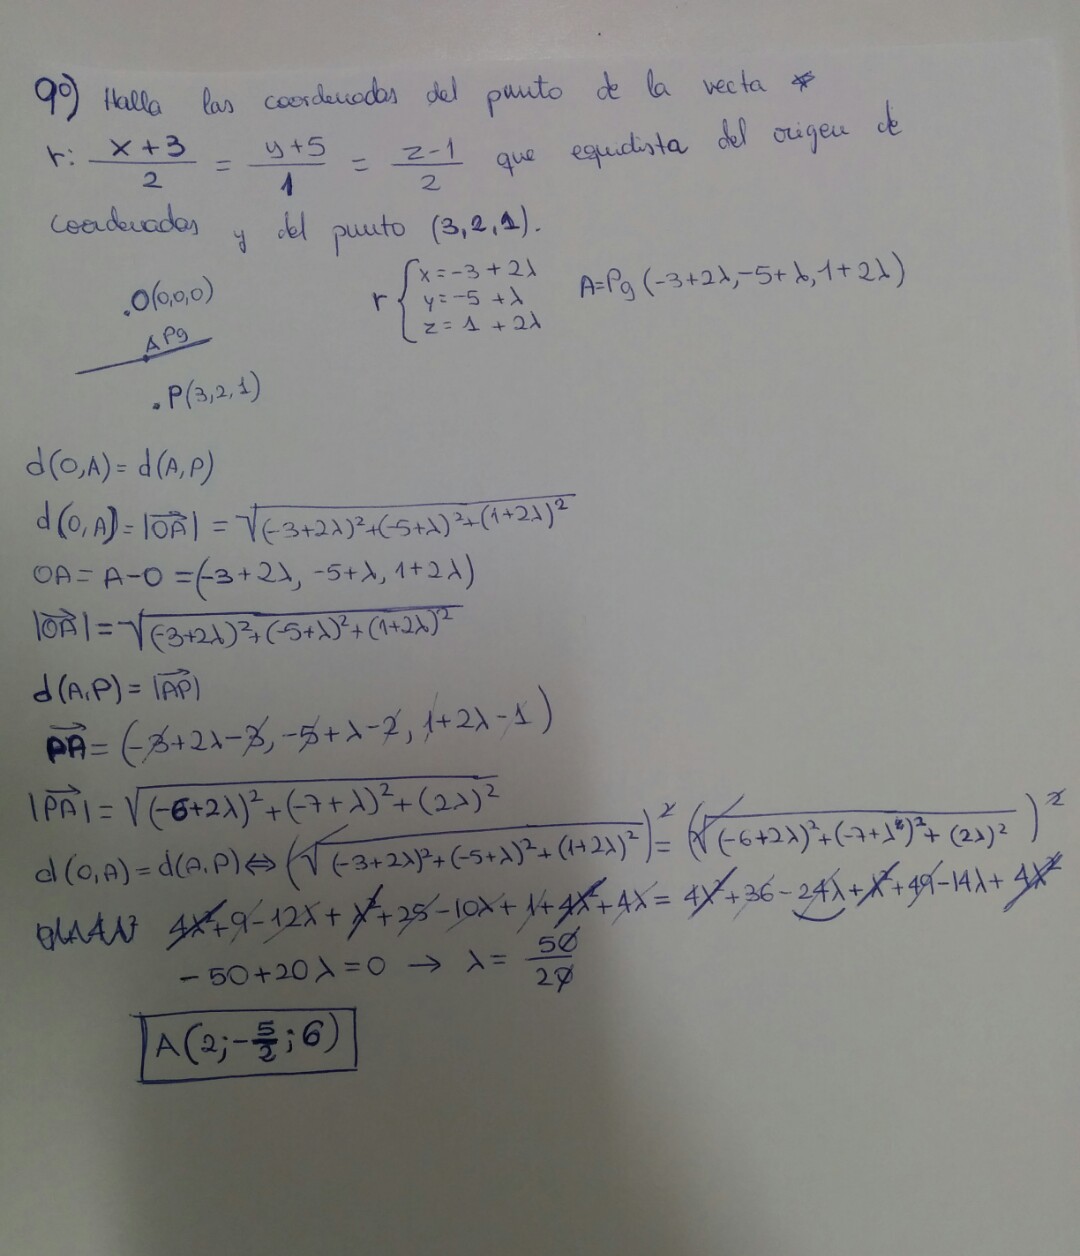 9º) Halla las coordenadas del punto de la recta *
r: (x+3)/2 = (y+5)/1 = (z-1)/2 que equidista del origen de
coordenadas y del punto (3,2,1).
.O(0,0,0)
r { x=-3+2λ
y=-5+λ
z=1+2λ
A=Pg (-3+2λ,-5+λ,1+2λ)
A Pg
.P(3,2,1)
d(O,A)= d(A,P)
d(O,A)= |OA| = √((-3+2λ)²+(-5+λ)²+(1+2λ)²)
OA= A-O =(-3+2λ, -5+λ, 1+2λ)
|OA| = √((-3+2λ)²+(-5+λ)²+(1+2λ)²)
d(A,P)= |AP|
PA= (-3+2λ-3, -5+λ-2, 1+2λ-1)
|PA| = √((-6+2λ)²+(-7+λ)²+(2λ)²)
d(O,A)=d(A,P)⇔(√((-3+2λ)²+(-5+λ)²+(1+2λ)²))² = (√((-6+2λ)²+(-7+λ)²+(2λ)²))²
4λ²+9-12λ+λ²+25-10λ+1+4λ²+4λ= 4λ²+36-24λ+λ²+49-14λ+4λ²
-50+20λ=0 → λ= 50/20
A(2;-5/2;6)